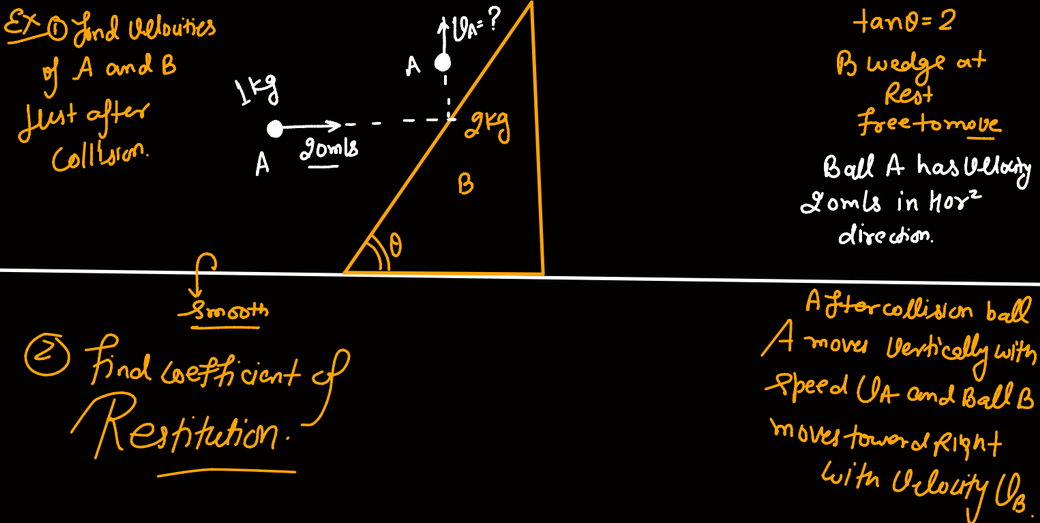 Ex ① Find Velocities
of A and B
Just after
Collision.
1kg
A
20m/s
A
VA = ?
2kg
B
θ
tanθ = 2
B wedge at
Rest
free to move
Ball A has Velocity
20m/s in Hor²
direction.
Smooth
② Find coefficient of
Restitution.
After collision ball
A moves Vertically with
Speed VA and Ball B
moves toward Right
with Velocity VB.